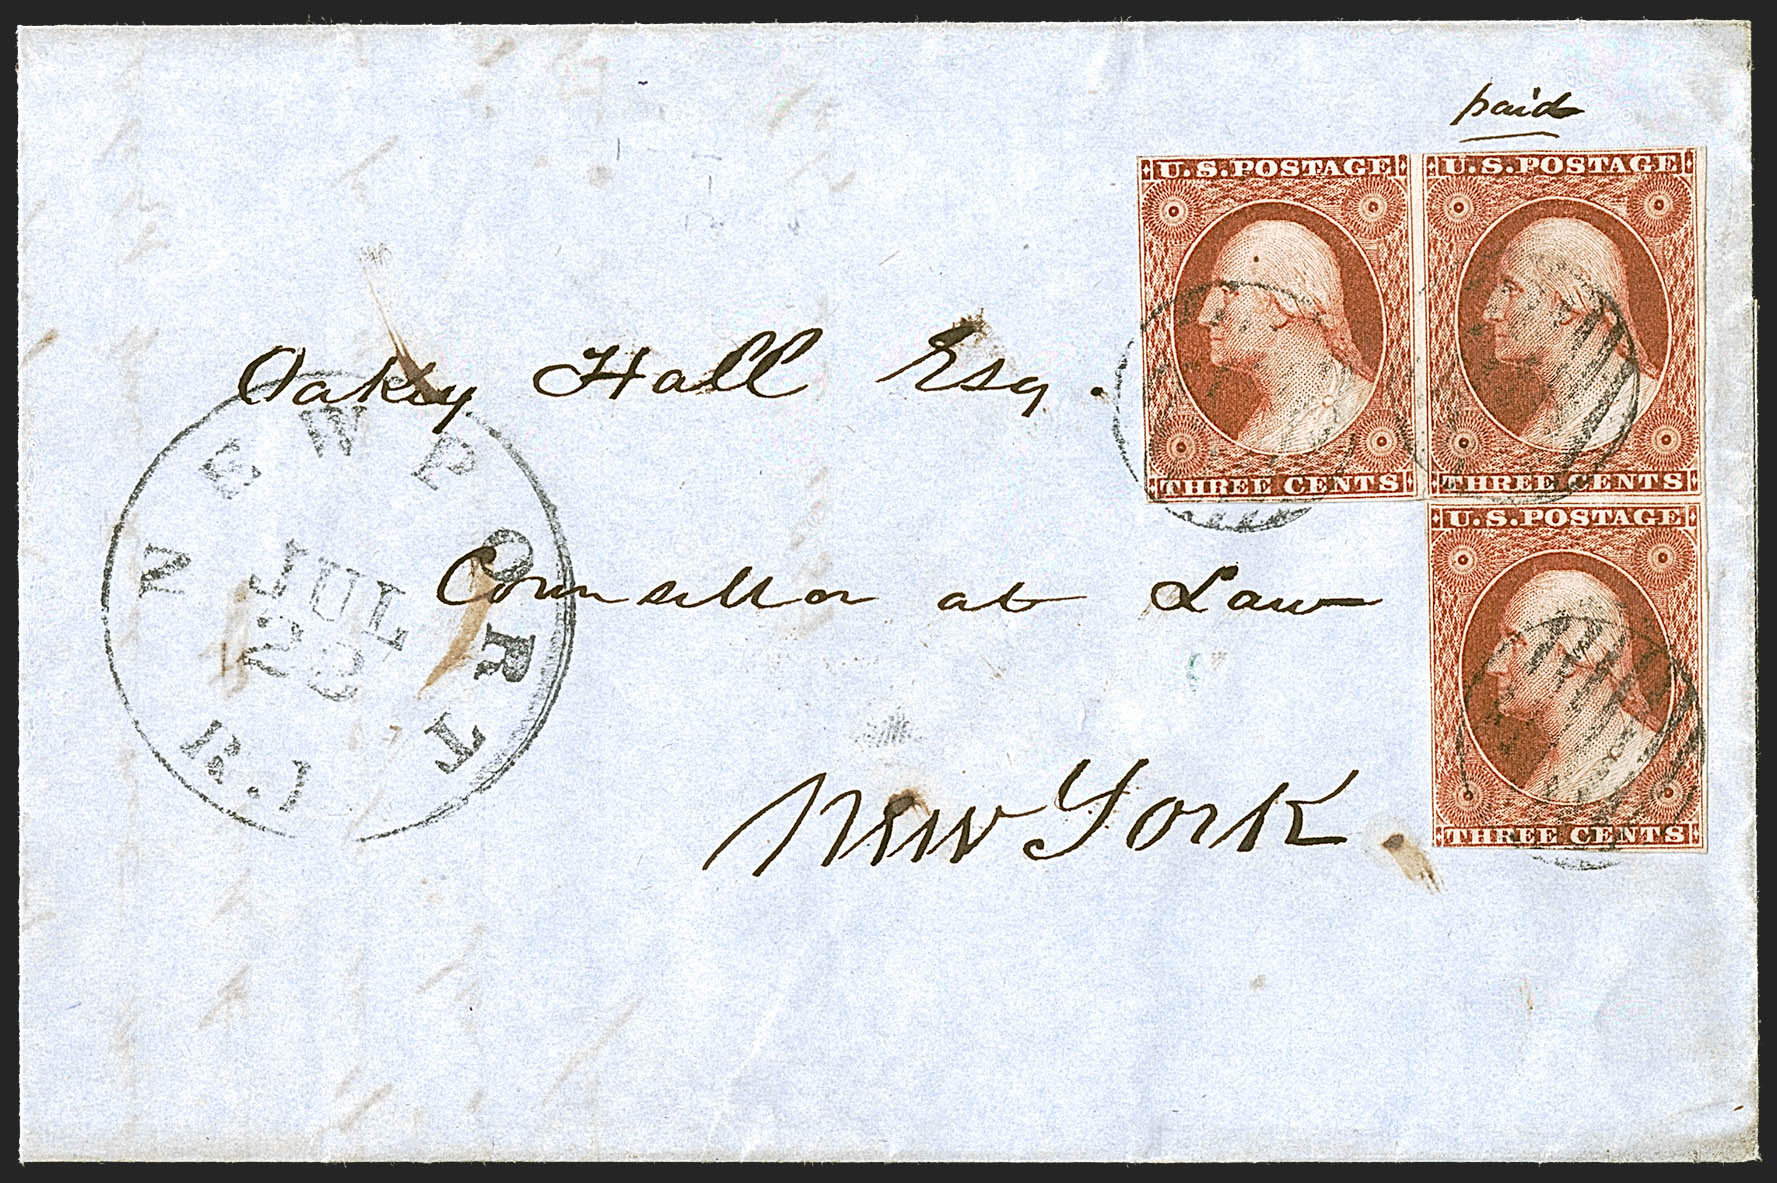 paid
U.S. POSTAGE
THREE CENTS
U.S. POSTAGE
THREE CENTS
U.S. POSTAGE
THREE CENTS
Oakey Hall Esq.
Counsellor at Law
New York.
NEWPORT
R.I
JUL
28